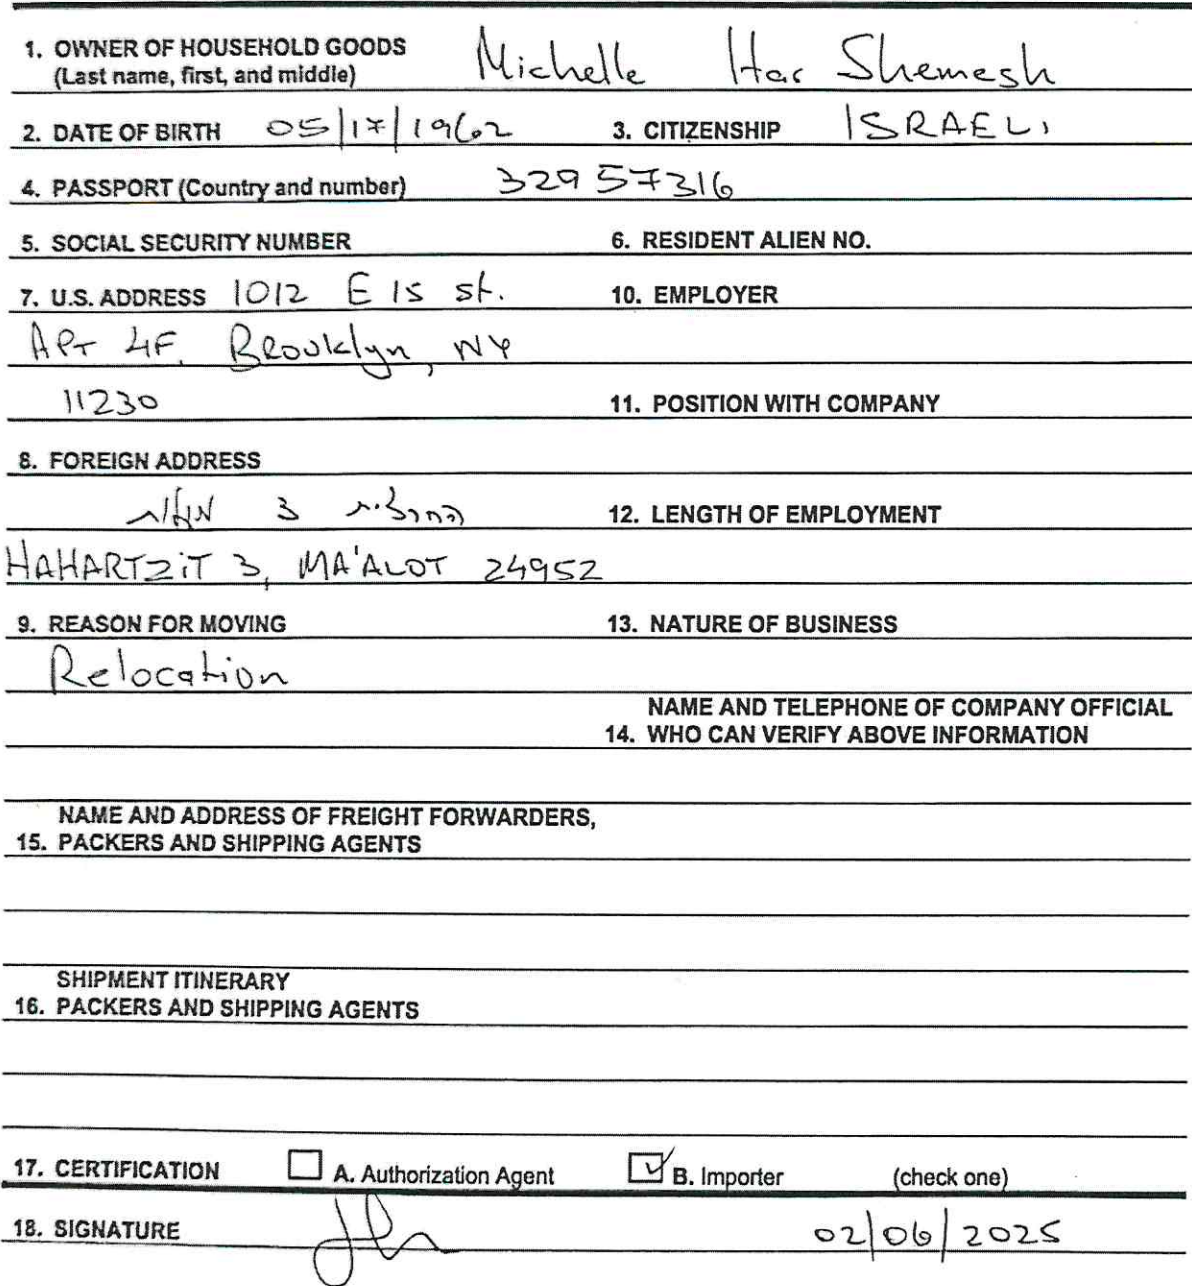 1. OWNER OF HOUSEHOLD GOODS Michelle Har Shemesh
(Last name, first, and middle)
2. DATE OF BIRTH 05/17/1962 3. CITIZENSHIP ISRAELI
4. PASSPORT (Country and number) 32957316
5. SOCIAL SECURITY NUMBER 6. RESIDENT ALIEN NO.
7. U.S. ADDRESS 1012 E 15 st. 10. EMPLOYER
APT 4F, Brooklyn, NY
11230 11. POSITION WITH COMPANY
8. FOREIGN ADDRESS
החרצית 3 מעלות 12. LENGTH OF EMPLOYMENT
HAHARTZiT 3, MA'ALOT 24952
9. REASON FOR MOVING 13. NATURE OF BUSINESS
Relocation
NAME AND TELEPHONE OF COMPANY OFFICIAL
14. WHO CAN VERIFY ABOVE INFORMATION
NAME AND ADDRESS OF FREIGHT FORWARDERS,
15. PACKERS AND SHIPPING AGENTS
SHIPMENT ITINERARY
16. PACKERS AND SHIPPING AGENTS
17. CERTIFICATION A. Authorization Agent B. Importer (check one)
18. SIGNATURE 02/06/2025